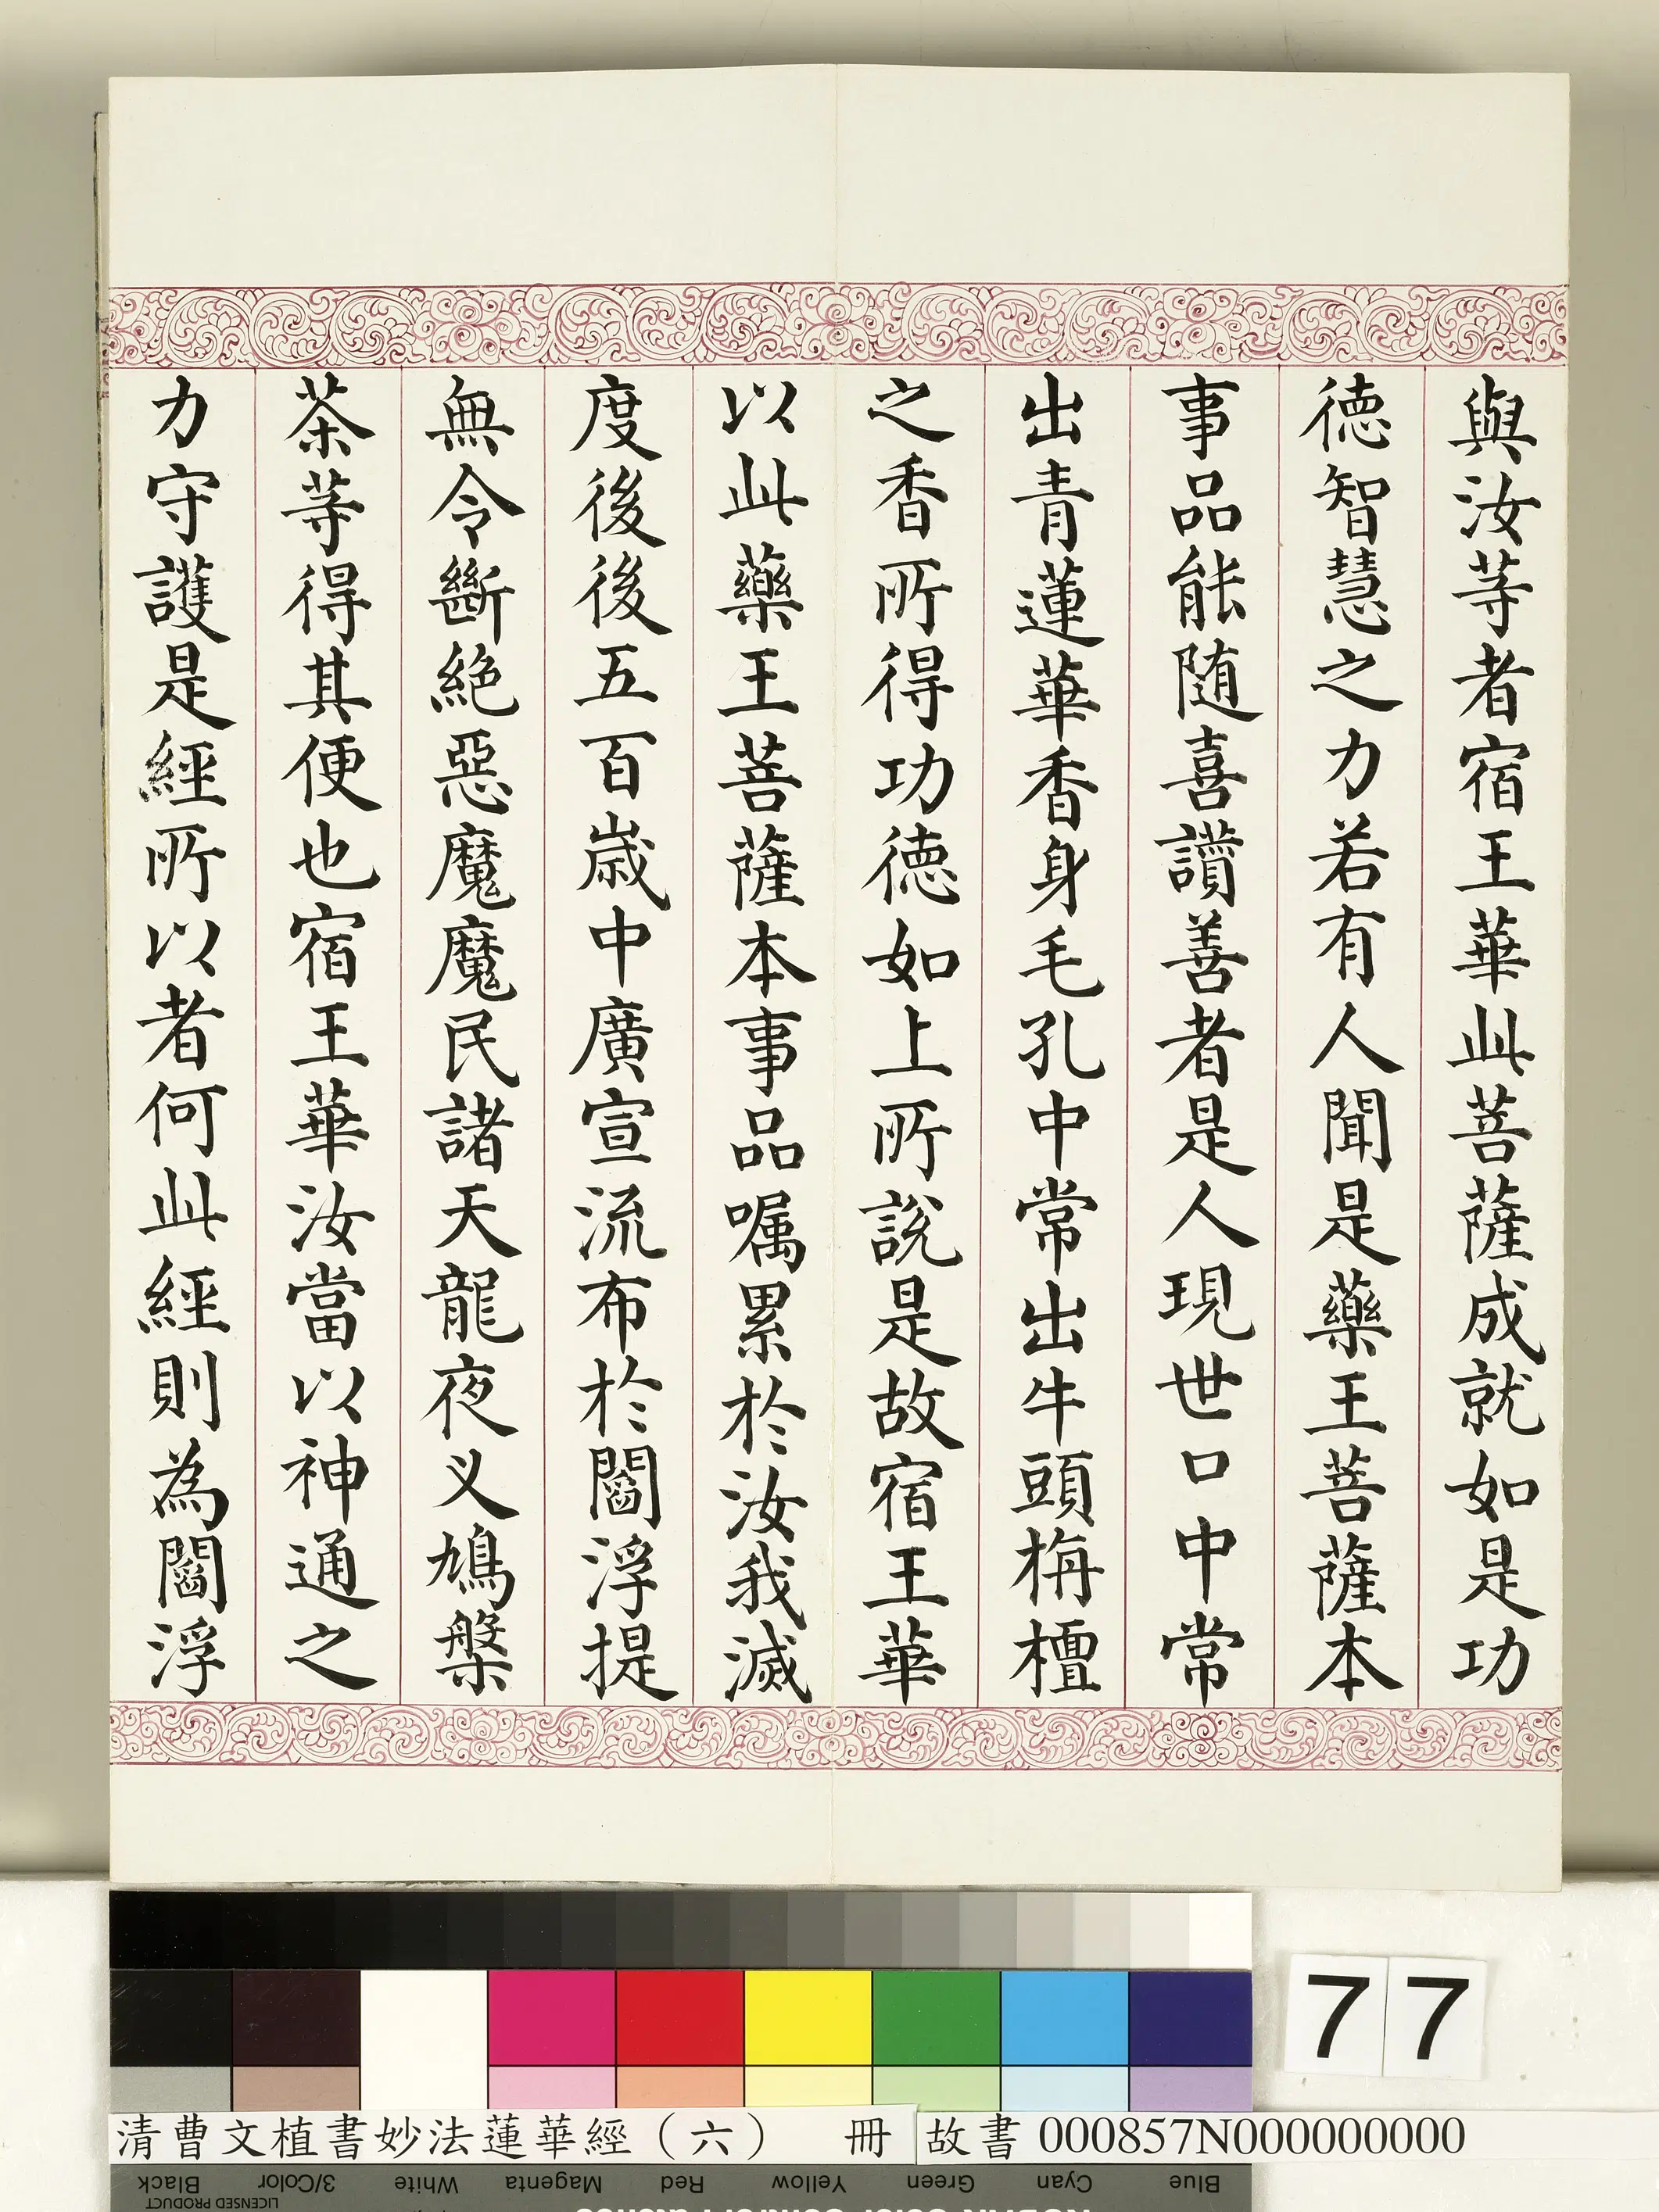 與汝等者宿王華此菩薩成就如是功
德智慧之力若有人聞是藥王菩薩本
事品能随喜讚善者是人現世口中常
出青蓮華香身毛孔中常出牛頭栴檀
之香所得功德如上所說是故宿王華
以此藥王菩薩本事品囑累於汝我滅
度後後五百歲中廣宣流布於閻浮提
無令斷絕惡魔魔民諸天龍夜义鳩槃
茶等得其便也宿王華汝當以神通之
力守護是經所以者何此經則為閻浮
77
清曹文植書妙法蓮華經（六） 冊 故書 000857N000000000
Black 3/Color White Magenta Red Yellow Green Cyan Blue
LICENSED PRODUCT